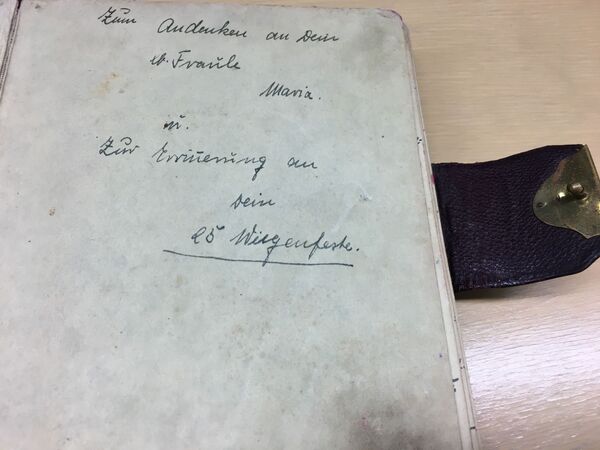 Zum Andenken an Dein
lb. Fraule
Maria.
u.
Zur Erinnerung an
Dein
25 Wiegenfeste.